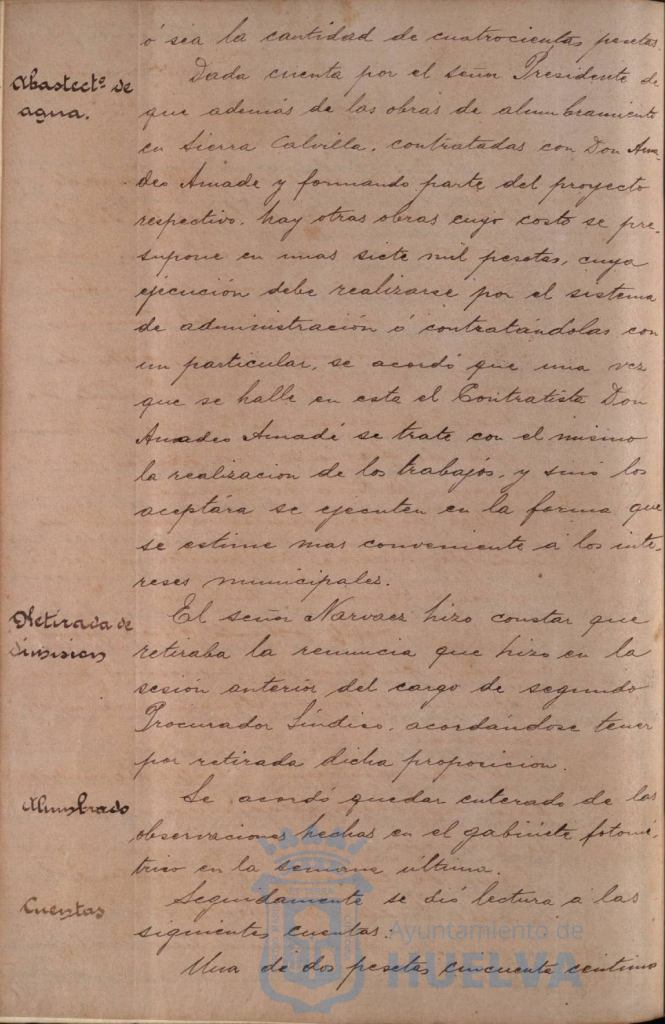 ó sea la cantidad de cuatrocientas pesetas.
Abastectº de
agua.
Dada cuenta por el señor Presidente de
que además de las obras de alumbramiento
en Sierra Calvilla, contratadas con Don Ama-
deo Amade y formando parte del proyecto
respectivo, hay otras obras cuyo costo se pre-
supone en unas siete mil pesetas, cuya
ejecución debe realizarse por el sistema
de administración ó contratándolas con
un particular, se acordó que una vez
que se halle en esta el Contratista Don
Amadeo Amadé se trate con el mismo
la realizacion de los trabajos, y sinó los
aceptára se ejecuten en la forma que
se estime mas conveniente á los inte-
reses municipales.
Retirada de
dimision
El señor Narvaez hizo constar que
retiraba la renuncia que hizo en la
sesión anterior del cargo de segundo
Procurador Síndico, acordándose tener
por retirada dicha proposicion.
Alumbrado
Se acordó quedar enterado de las
observaciones hechas en el gabinete fotomé-
trico en la semana última.
Cuentas
Segundamente se dió lectura á las
siguientes cuentas:
Una de dos pesetas cincuenta centimos
Ayuntamiento de
HUELVA